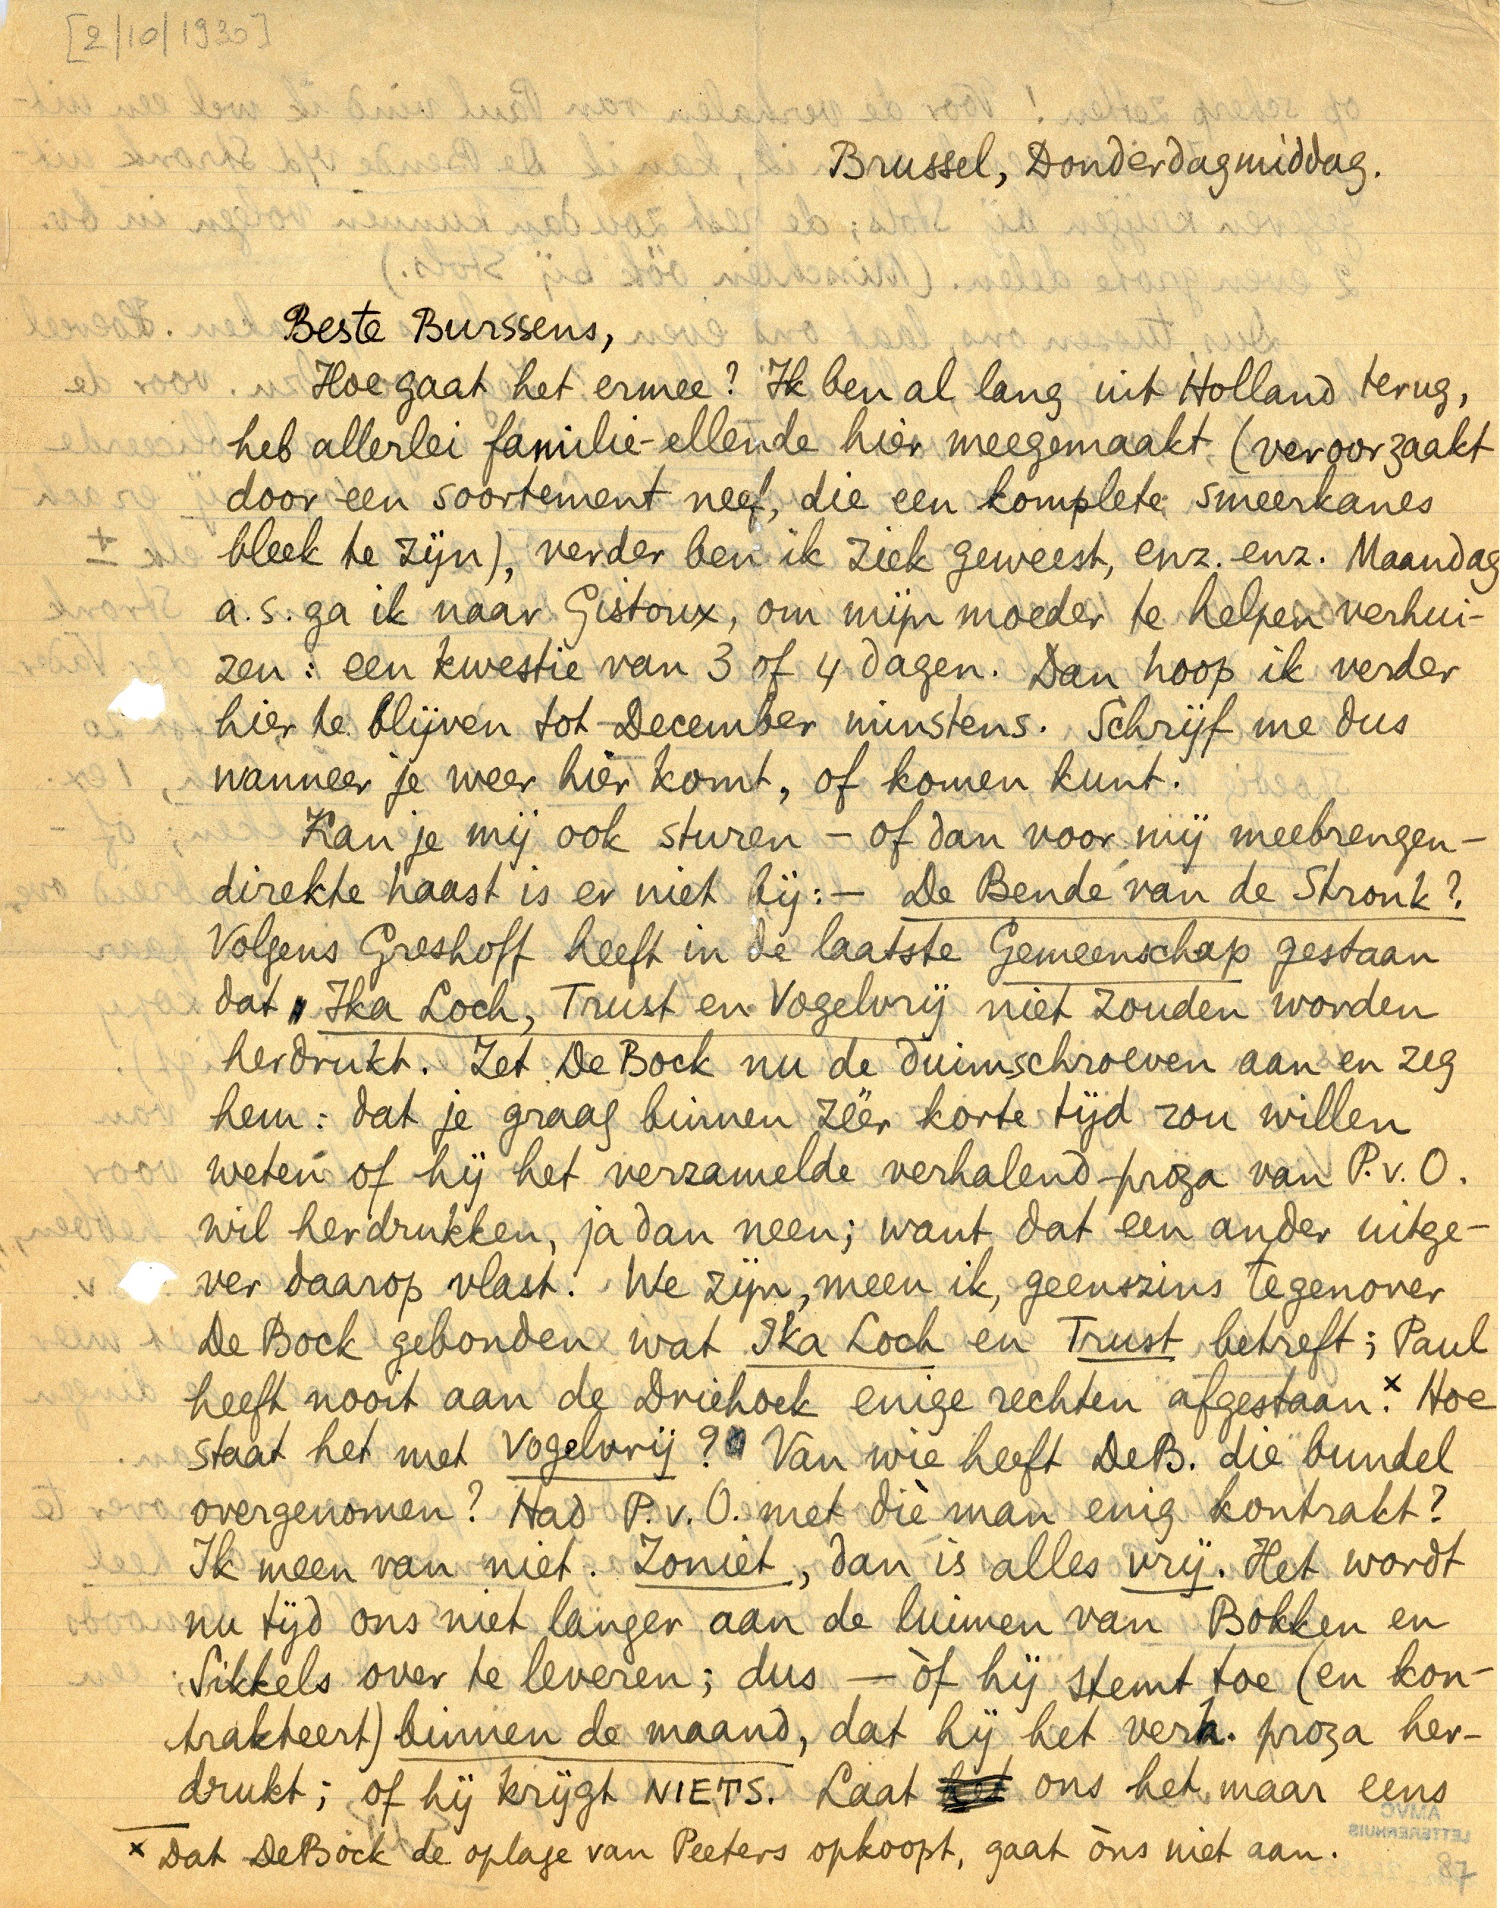 [2/10/1930]
Brussel, Donderdagmiddag.
Beste Burssens,
Hoe gaat het ermee? Ik ben al lang uit Holland terug,
heb allerlei familie-ellende hier meegemaakt (veroorzaakt
door een soortement neef, die een komplete smeerkanes
bleek te zijn), verder ben ik ziek geweest, enz. enz. Maandag
a.s. ga ik naar Gistoux, om mijn moeder te helpen verhui-
zen: een kwestie van 3 of 4 dagen. Dan hoop ik verder
hier te blijven tot December minstens. Schrijf me dus
wanneer je weer hier komt, of komen kunt.
Kan je mij ook sturen – of dan voor mij meebrengen –
direkte haast is er niet bij: – De Bende van de Stronk?
Volgens Greshoff heeft in de laatste Gemeenschap gestaan
dat Ika Loch, Trust en Vogelvrij niet zouden worden
herdrukt. Zet De Bock nu de duimschroeven aan en zeg
hem: dat je graag binnen zéér korte tijd zou willen
weten of hij het verzamelde verhalend proza van P.v.O.
wil herdrukken, ja dan neen; want dat een ander uitge-
ver daarop vlast. We zijn, meen ik, geenszins tegenover
De Bock gebonden wat Ika Loch en Trust betreft; Paul
heeft nooit aan de Driehoek enige rechten afgestaan.x Hoe
staat het met Vogelvrij? Van wie heeft DeB. die bundel
overgenomen? Had P.v.O. met diè man enig kontrakt?
Ik meen van niet. Zoniet, dan is alles vrij. Het wordt
nu tijd ons niet langer aan de luimen van Bokken en
Sikkels over te leveren; dus — òf hij stemt toe (en kon-
trakteert) binnen de maand, dat hij het verh. proza her-
drukt; of hij krijgt NIETS. Laat ons het maar eens
x Dat DeBock de oplage van Peeters opkoopt, gaat òns niet aan.
AMVC
LETTERENHUIS